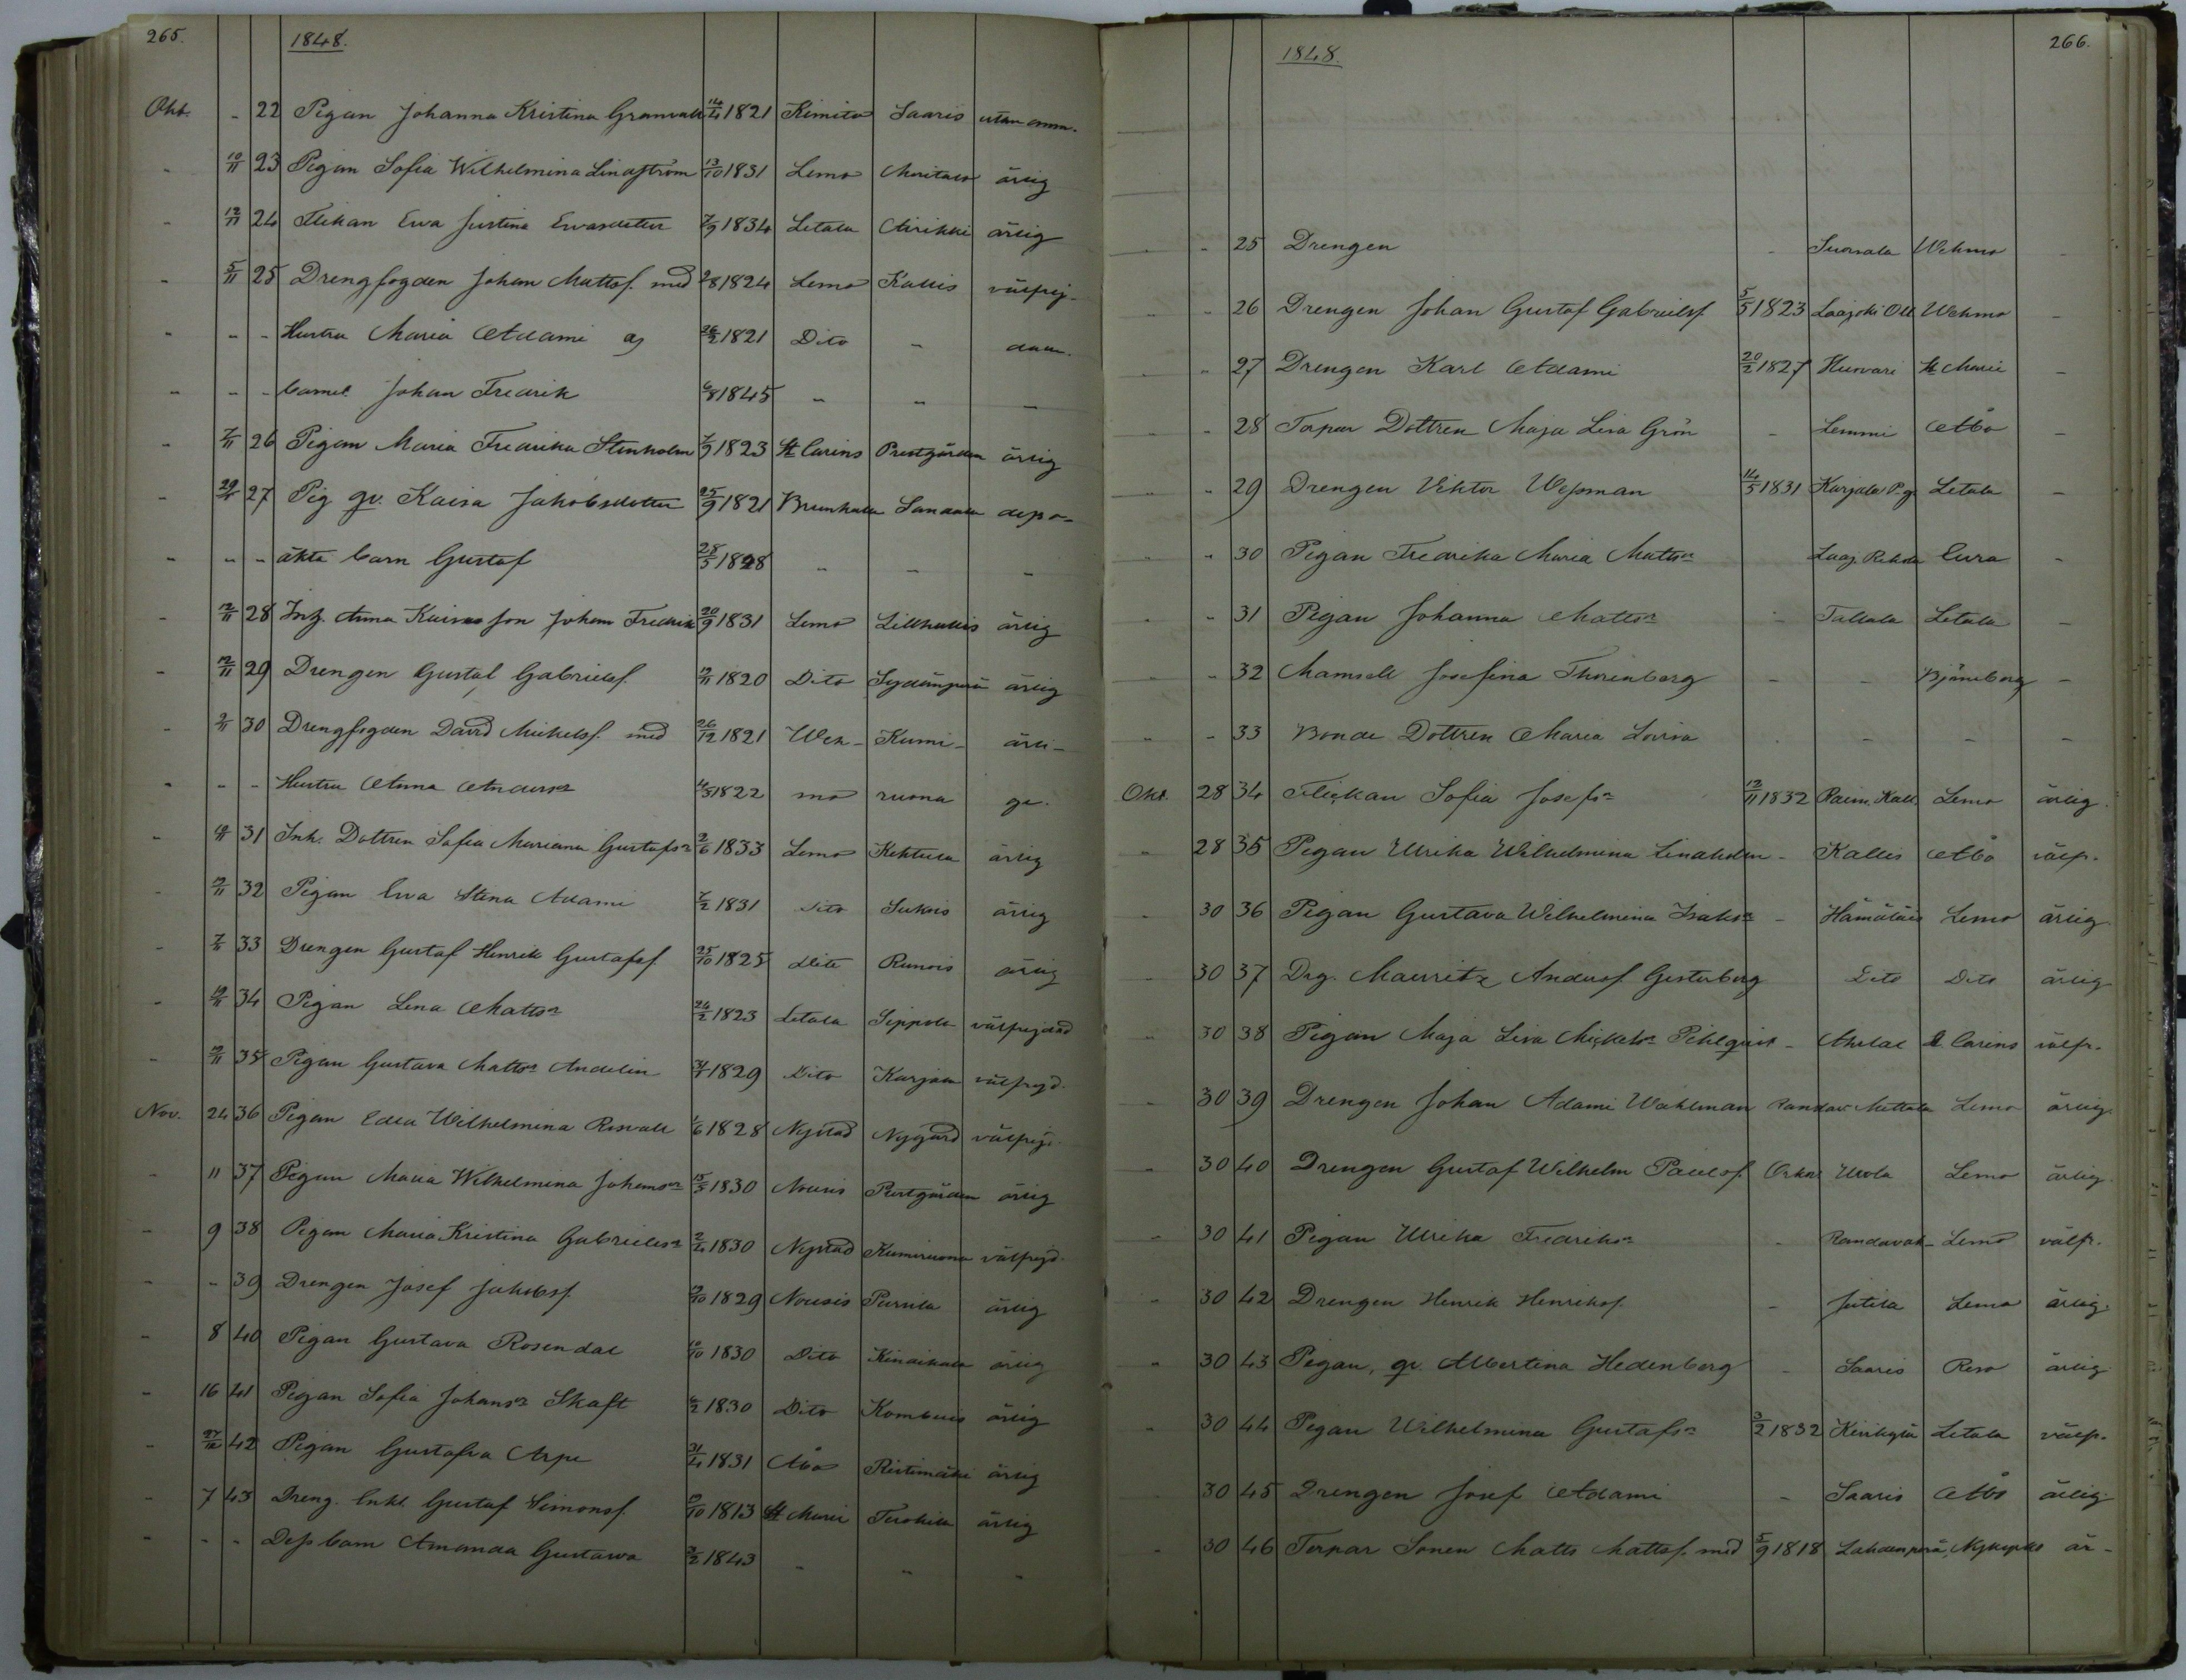 265. 1848.
Okt. - 22 Pigan Johanna Kristina Granvall 14/4 1821 Kimito Saaris utan anm.
- 10/11 23 Pigan Sofia Wilhelmina Lindström 13/10 1831 Lemo ärlig
- 12/11 24 Flickan Ewa Justina Ewasdotter 7/9 1834 Letala Mirikki ärlig
- 5/11 25 Drengfogden Johan Mattsf. med 2/8 1824 Lemo Kallis välfrej-
- - - Hustru Maria Adami 26/2 1821 Dito -
- - - barnet Johan Fredrik 6/8 1845 - - -
- 7/11 26 Pigan Maria Fredrika Stenholm 7/9 1823 St Carins Prestgården ärlig
- 27 Pig qv. Kaisa Jakobsdotter 25/9 1821 Brunkala
- - - äkta barn Gustaf 28/5 1848 - - -
- 2/11 28 Inh. Anna Kaisas son Johan Fredrik 20/9 1831 Lemo Lillkallis ärlig
- 12/11 29 Drengen Gustaf Gabrielsf. 12/11 1820 Dito Sydänperä ärlig
- 2/11 30 Drengfogden David Mickelsf. med 26/12 1821 Weh- Kumi- ärli-
- - - Hustru Anna Andersdr 4/5 1822 mo ruona ge.
- 31 Inh. Dottren Sofia Mariana Gustafsdr 2/6 1833 Lemo Kehtula ärlig
- 12/11 32 Pigan Ewa Stina Adami 7/2 1831 Dito Sukois ärlig
- 33 Drengen Gustaf Henrik Gustafsf. 25/10 1825 Dito Runois ärlig
- 34 Pigan Lena Mattsdr 24/2 1823 Letala Seppola välfrejdad
- 35 Pigan Gustava Mattsdr Andelin 1829 Dito Karjala välfrejd.
Nov. 24 36 Pigan Edla Wilhelmina 1/6 1828 Nystad Nygård välfrejd.
- 11 37 Pigan Maria Wilhelmina Johansdr 15/5 1830 Nousis Prestgården ärlig
- 9 38 Pigan Maria Kristina Gabrielsdr 2/4 1830 Nystad Kumiruona välfrejd.
- - 39 Drengen Josef Jakobsf. 1829 Nousis Pursila ärlig
- 8 40 Pigan Gustava Rosendal 1830 Dito Kinaikala ärlig
- 16 41 Pigan Sofia Johansdr Skaft 1830 Dito ärlig
- 42 Pigan Gustafva Arpe 1831 Åbo Ristimäki ärlig
- 7 43 Dreng. Enkl. Gustaf Simonsf. 1813 St Marie ärlig
- - - Dess barn Amanda Gustawa 1843 - - -
1848. 266.
- - 25 Drengen - Suorsala Wehmo -
- - 26 Drengen Johan Gustaf Gabrielsf 5/5 1823 Laajoki Wehmo -
- - 27 Drengen Karl Adami 20/2 1827 Hurvari St Marie -
- - 28 Torpar Dottren Maja Lisa Grön - Lemmi Åbo -
- - 29 Drengen Viktor Wessman 14/5 1831 Karjala P.g. Letala -
- - 30 Pigan Fredrika Maria Mattsdr Eura -
- - 31 Pigan Johanna Mattsdr - Tallala Letala -
- - 32 Mamsell Josefina Thorenberg - - Björneborg -
- - 33 Bonde Dottren Maria Lovisa - - - -
Okt. 28 34 Flickan Sofia Josefsdr 12/11 1832 Paim. Kall. Lemo ärlig.
- 28 35 Pigan Ulrika Wilhelmina Lindholm - Kallis Åbo välfr.
- 30 36 Pigan Gustava Wilhelmina Isaksdr - Hämäläis Lemo ärlig
- 30 37 Drg. Mauritz Andersf. Gesterberg Dito Dito ärlig
- 30 38 Pigan Maja Lisa Mickelsdr Pihlqvist - St Carins välfr.
- 30 39 Drengen Johan Adami Wahlman Lemo ärlig.
- 30 40 Drengen Gustaf Wilhelm Paulsf. Lemo ärlig
- 30 41 Pigan Ulrika Fredriksdr - Lemo välfr.
- 30 42 Drengen Henrik Henriksf. - Jutila Lemo ärlig.
- 30 43 Pigan, qv. Albertina Hedenberg - Saaris Reso ärlig.
- 30 44 Pigan Wilhelmina Gustafsdr 3/2 1832 Letala välfr.
30 45 Drengen Josef Adami - Saaris Åbo ärlig.
- 30 46 Torpar Sonen Matts Mattsf. med 5/9 1818 Lahdenperä, Nykyrko är-